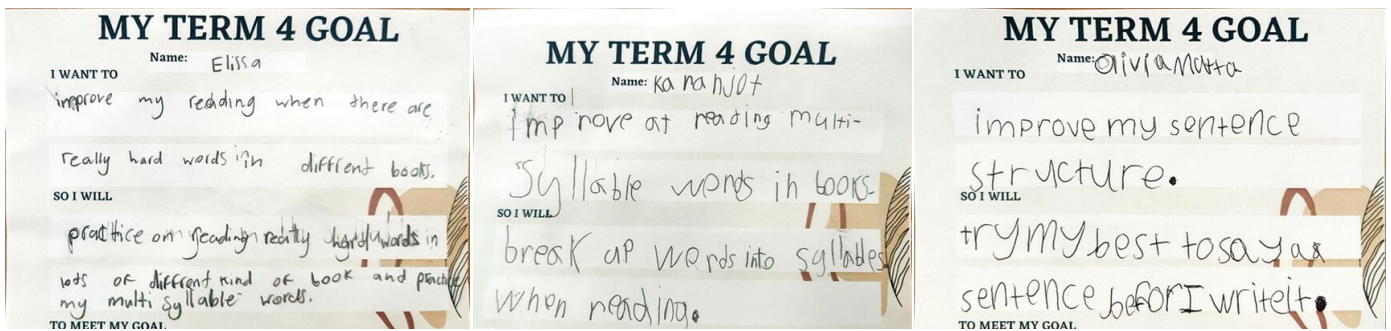 MY TERM 4 GOAL
Name: Elissa
I WANT TO
improve my reading when there are
really hard words in diffrent books.
SO I WILL
practice on reading really hard words in
lots of diffrent kind of book and practice
my multi syllable words.
TO MEET MY GOAL
MY TERM 4 GOAL
Name: Karanjot
I WANT TO
Improve at reading multi-
syllable words in books
SO I WILL
break up words into syllables
when reading.
MY TERM 4 GOAL
Name: Olivia Matta
I WANT TO
improve my sentence
structure.
SO I WILL
try my best to say a
sentence befor I write it.
TO MEET MY GOAL